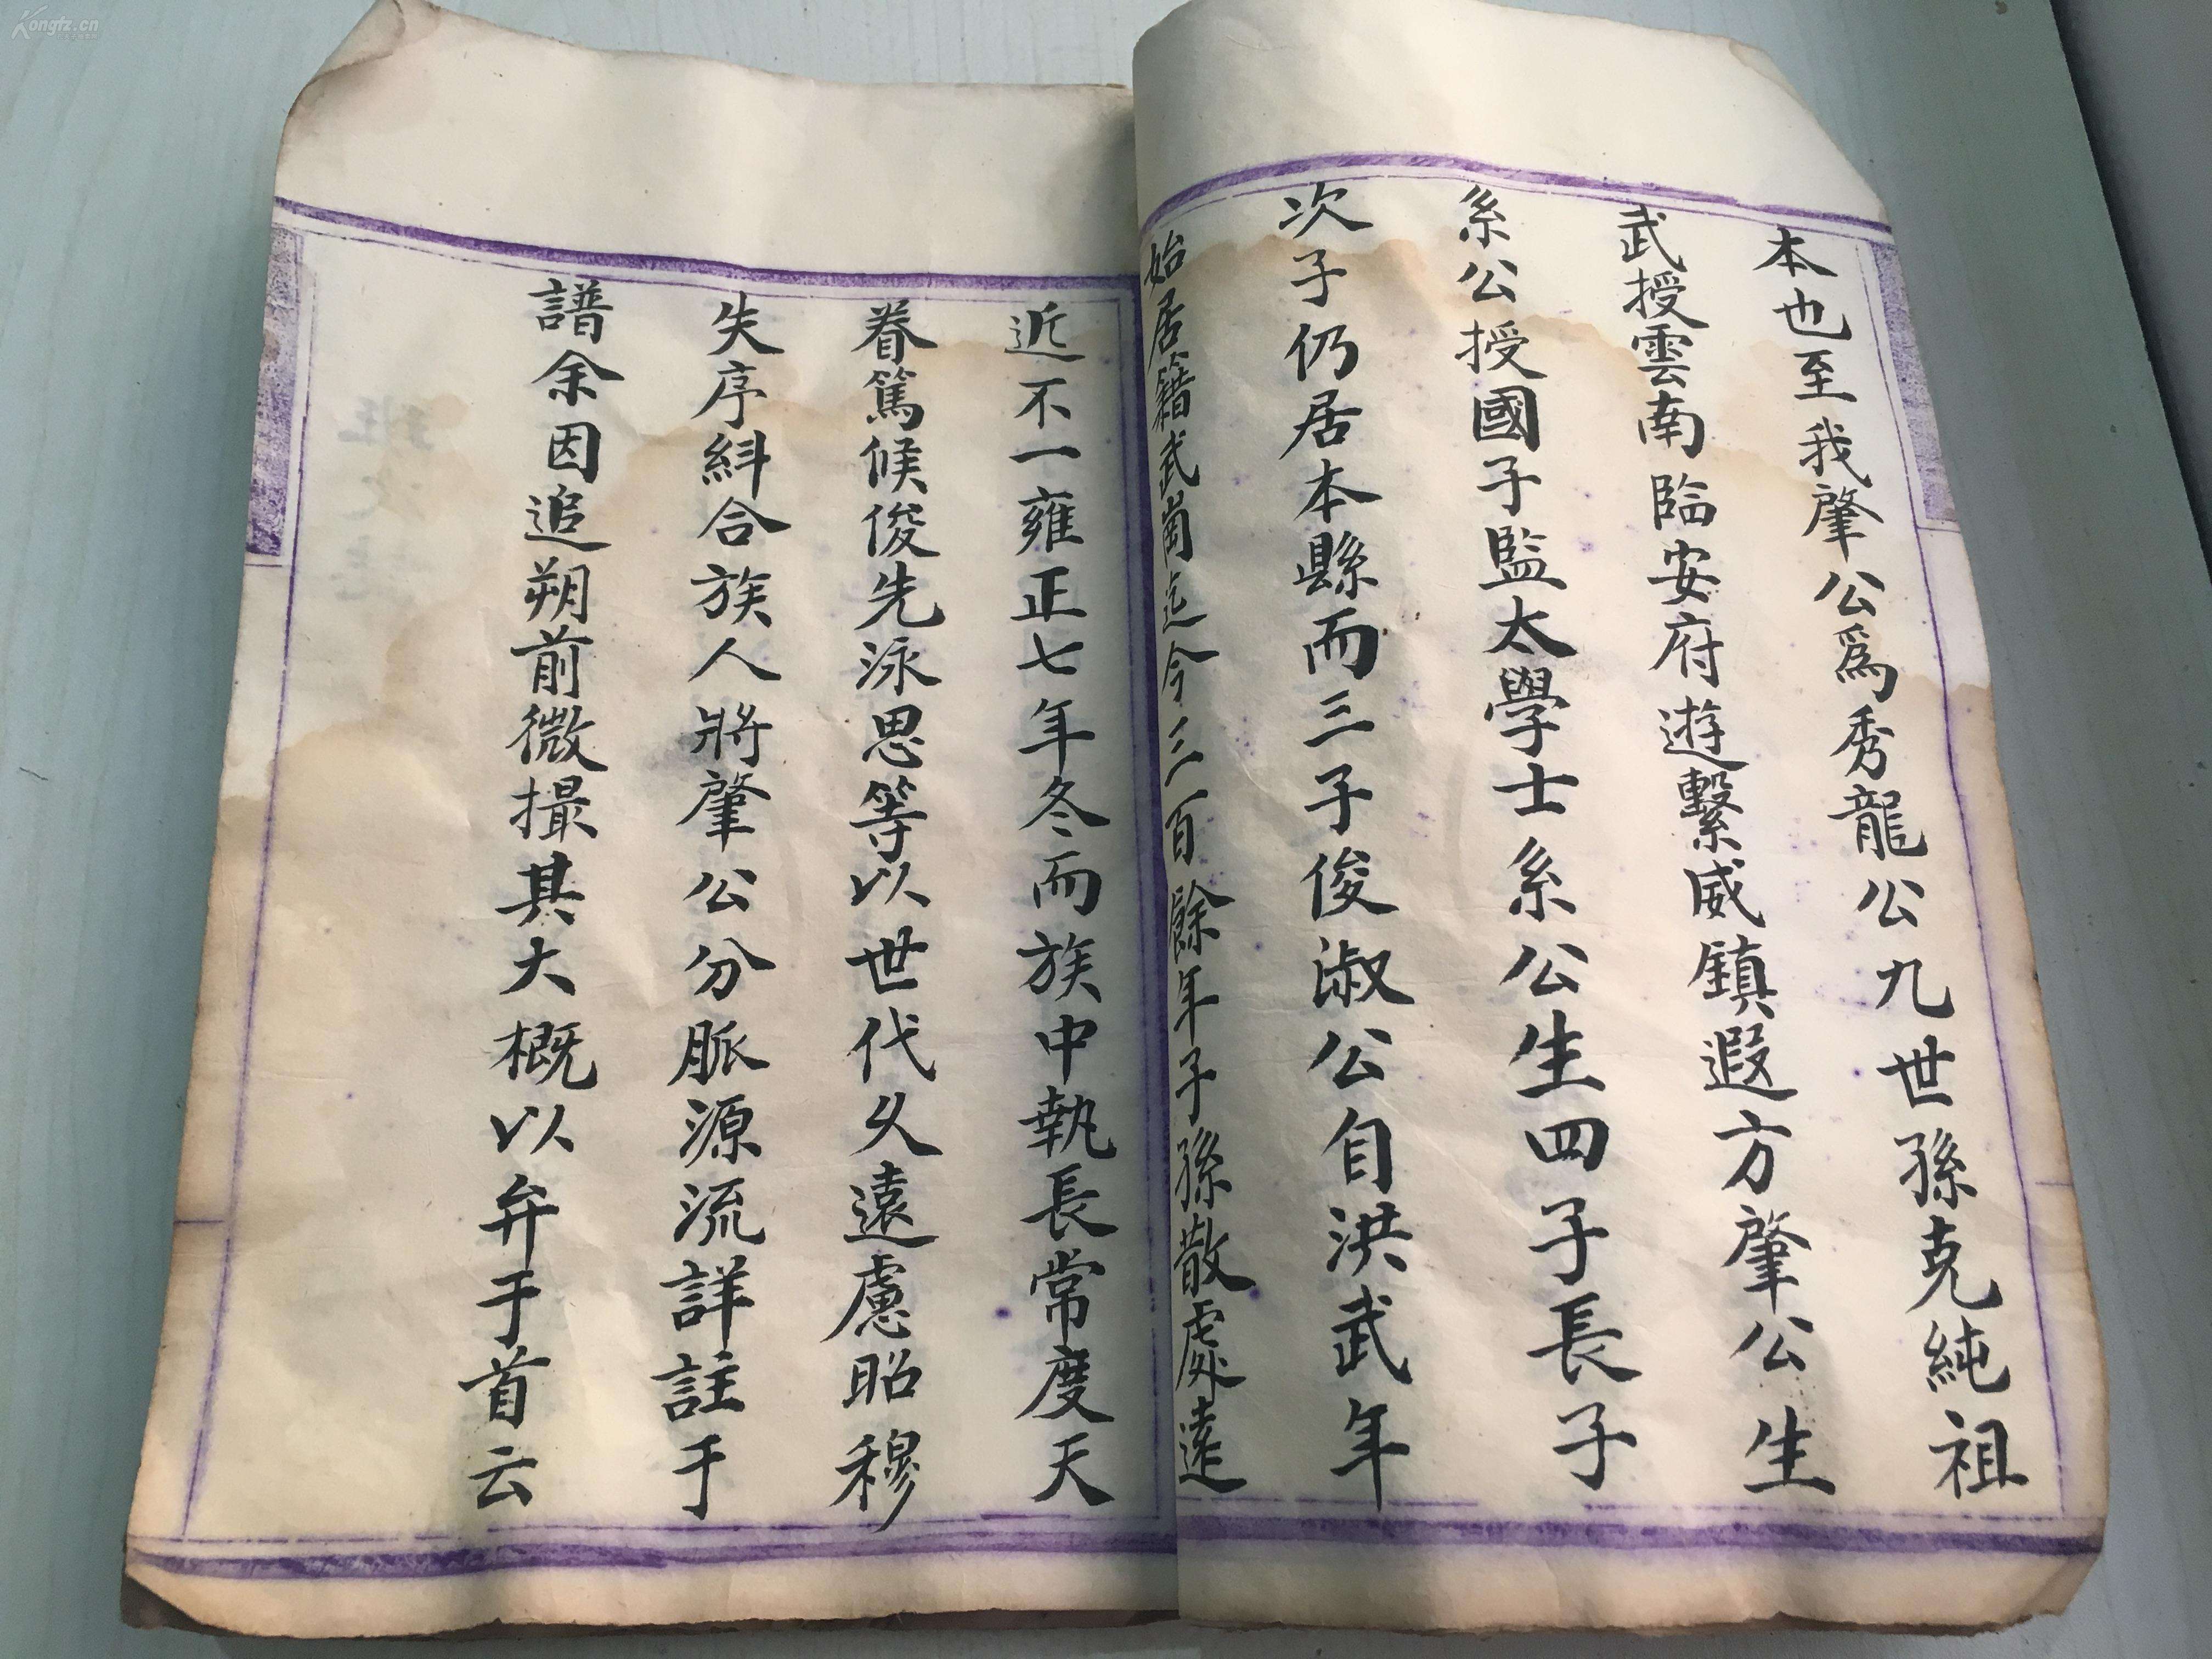 本也至我肇公爲秀龍公九世孫克純祖
武授雲南臨安府遊擊威鎮遐方肇公生
系公授國子監太學士系公生四子長子
次子仍居本縣而三子俊淑公自洪武年
始居籍武崗迄今三百餘年子孫散處遠
近不一雍正七年冬而族中執長常度天
眷篤候俊先泳思等以世代久遠慮昭穆
失序糾合族人將肇公分脈源流詳註于
譜余因追朔前微撮其大概以弁于首云
Kongfz.cn